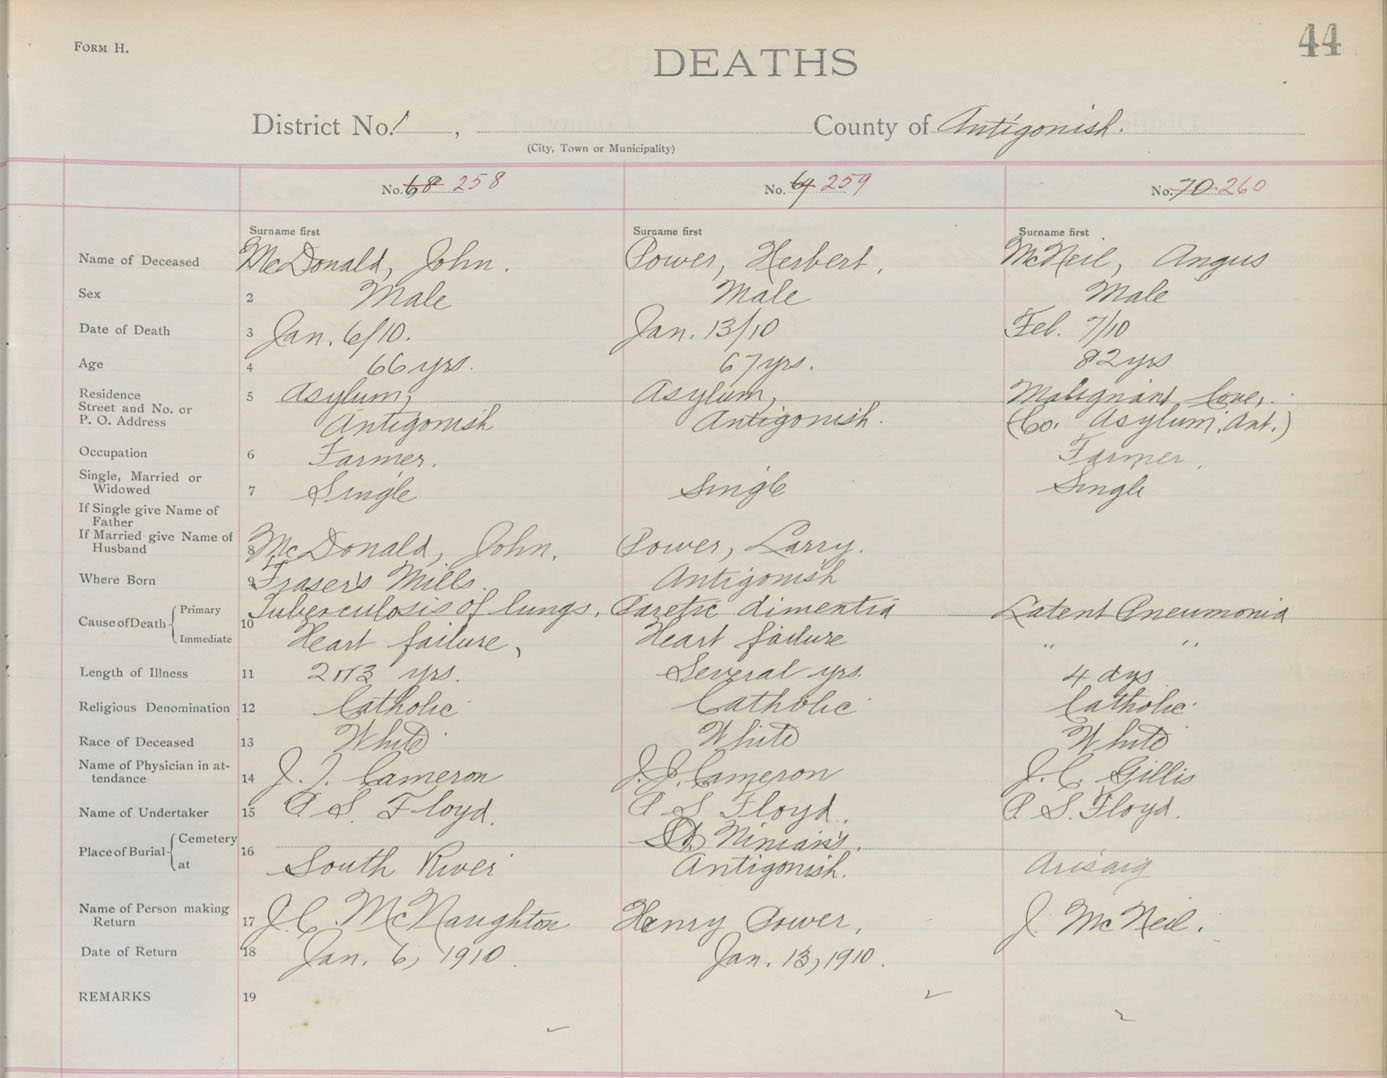 FORM H.
44
DEATHS
District No. 1 , County of Antigonish.
(City, Town or Municipality)
No. 68 258 No. 69 259 No. 70 260
Surname first Surname first Surname first
Name of Deceased McDonald, John. Power, Herbert, McNeil, Angus
Sex 2 Male Male Male
Date of Death 3 Jan. 6/10. Jan. 13/10 Feb. 7/10
Age 4 66 yrs. 67 yrs. 82 yrs
Residence 5 Asylum, Asylum, Malignant Cove,
Street and No. or
P. O. Address Antigonish Antigonish. (Co. Asylum, Ant.)
Occupation 6 Farmer. Farmer.
Single, Married or
Widowed 7 Single Single Single
If Single give Name of
Father
If Married give Name of
Husband 8 McDonald, John, Power, Larry.
Where Born 9 Fraser's Mills Antigonish
Cause of Death Primary 10 Tuberculosis of lungs, Paretic dimentia Latent Pneumonia
Immediate Heart failure, Heart failure " "
Length of Illness 11 2 or 3 yrs. Several yrs. 4 dys
Religious Denomination 12 Catholic Catholic Catholic
Race of Deceased 13 White White White
Name of Physician in at-
tendance 14 J. J. Cameron J. J. Cameron J. C. Gillis
Name of Undertaker 15 P S. Floyd. P S. Floyd. P S. Floyd.
Place of Burial Cemetery 16 St Ninian's.
at South River Antigonish. Arisaig
Name of Person making
Return 17 J. C. McNaughton Henry Power, J. McNeil.
Date of Return 18 Jan. 6, 1910. Jan. 13, 1910.
REMARKS 19